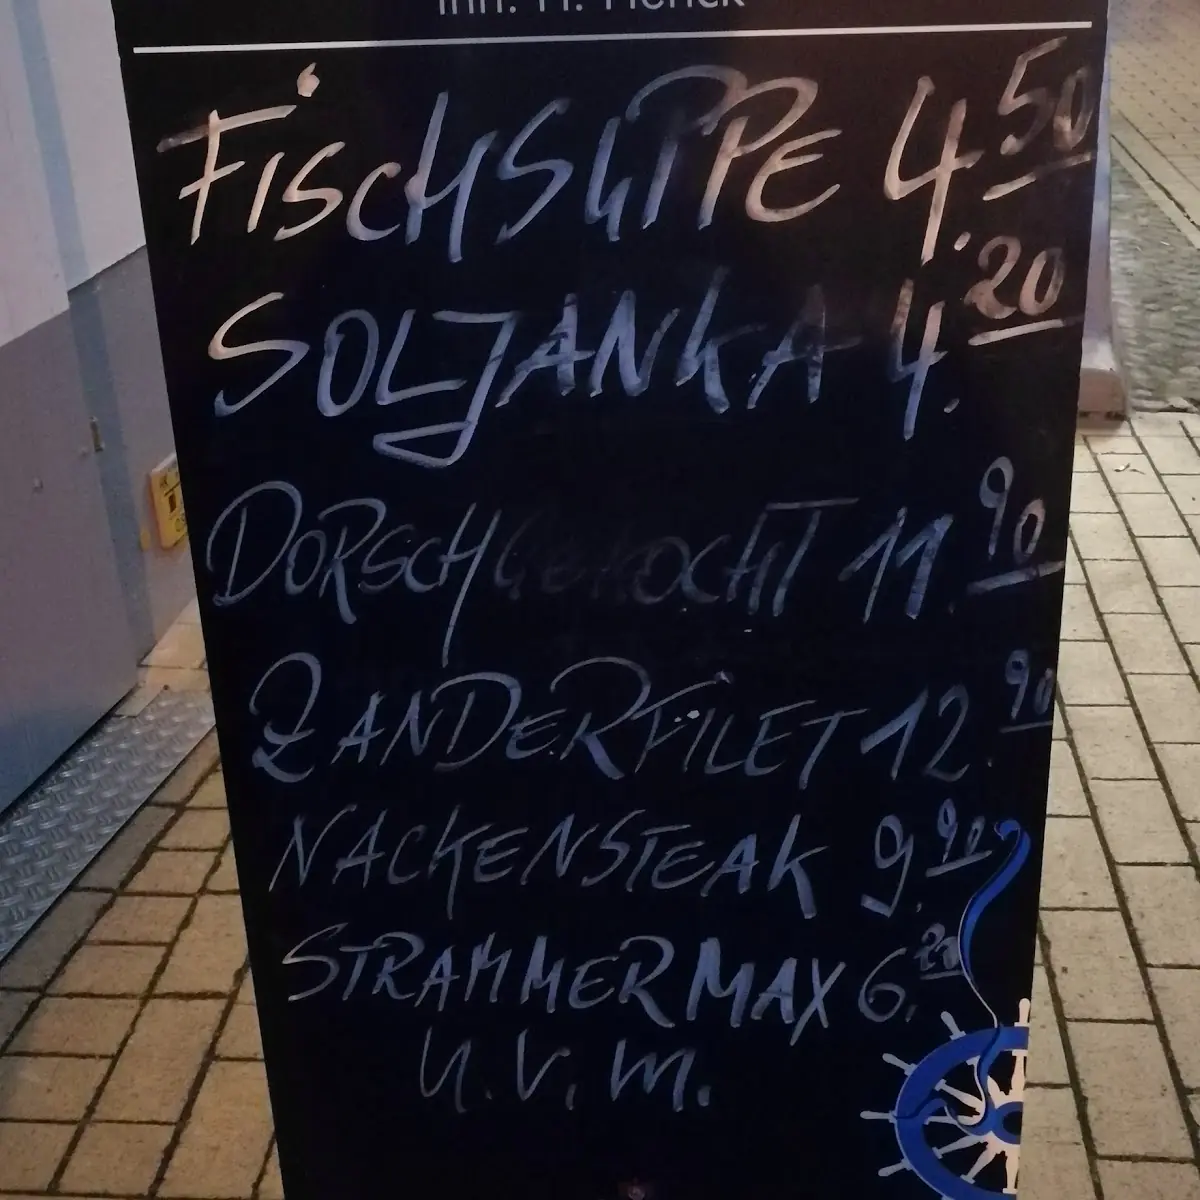 FiSCHSUPPE 4.50
SOLJANKA 4.20
DORSCH GEKOCHT 11.90
ZANDERFILET 12.90
NACKENSTEAK 9.90
STRAMMER MAX 6.20
u.v.m.